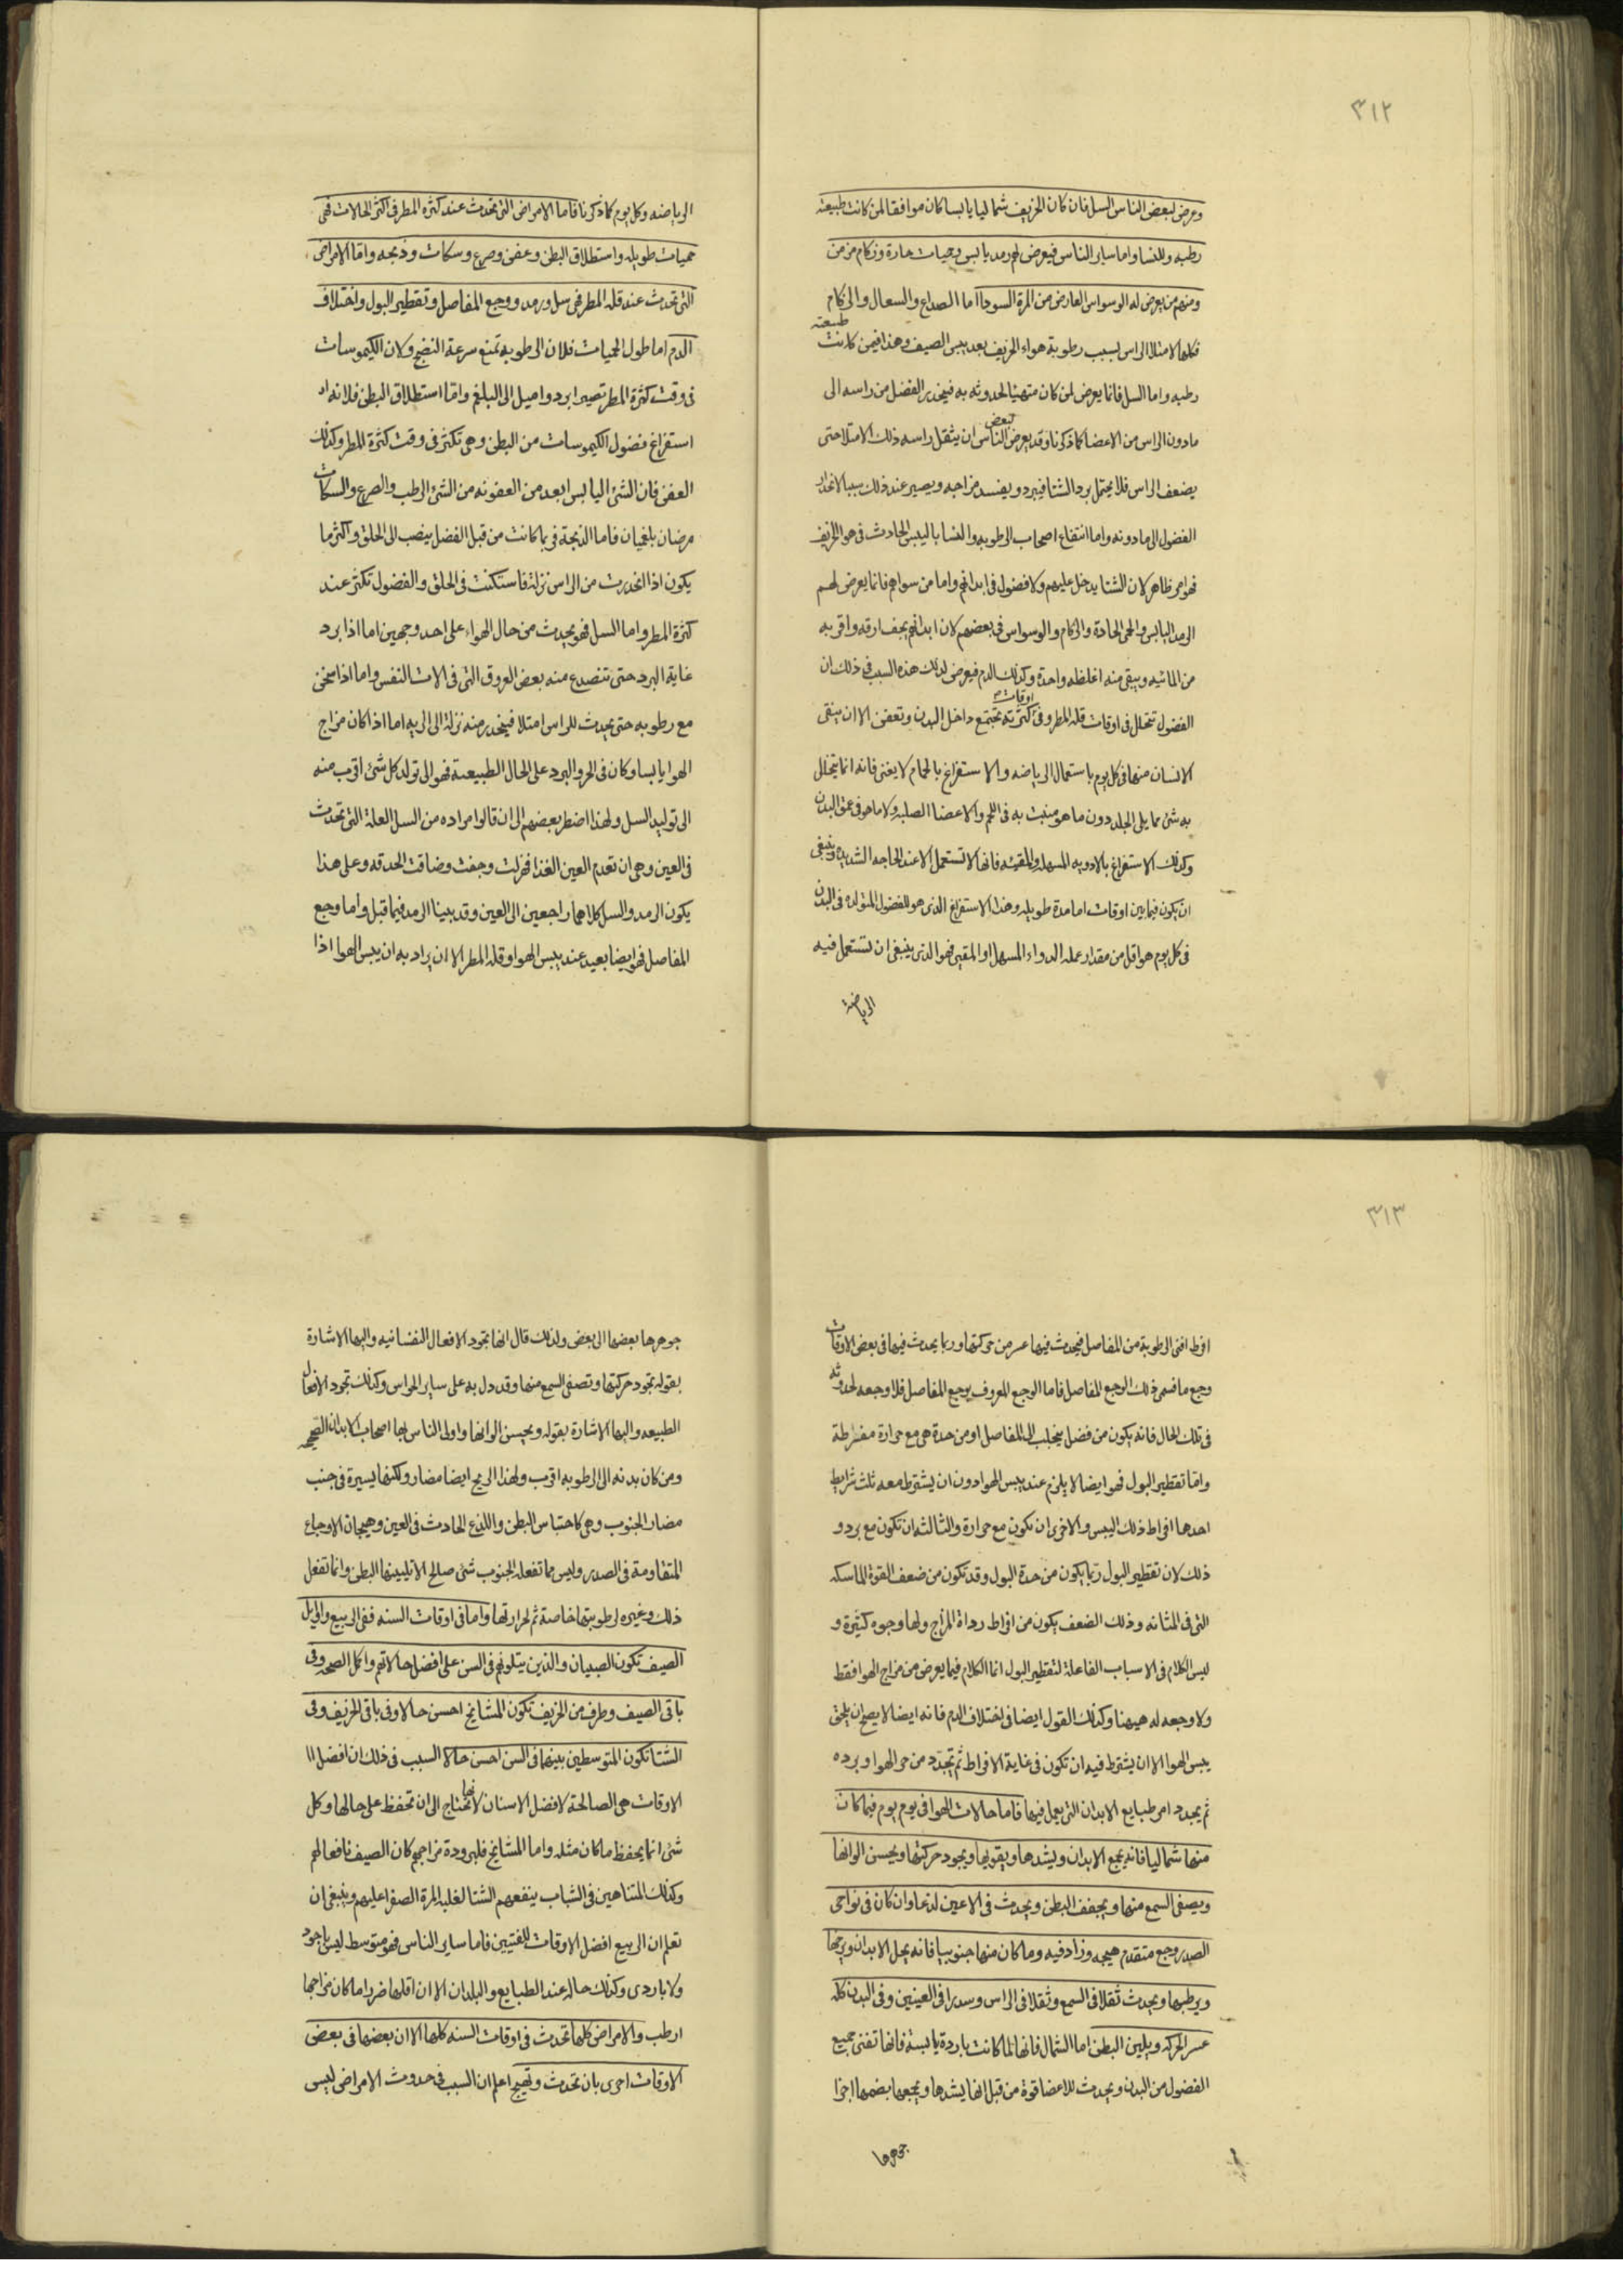 ٣١٢
وعرض لبعض الناس السل فان كان الخريف شماليا يابسا كان موافقا لمن كانت طبيعته
رطبه وللنسا واما ساير الناس فيعرض لهم رمد يابس وحميات حادة وزكام مزمن
ومنهم من يعرض له الوسواس العارض من المرة السودا اما الصداع والسعال والزكام
فكلها لامتلا الراس بسبب رطوبة هواء الخريف بعد يبس الصيف وهذا فيمن كانت طبيعته
رطبه واما السل فانما يعرض لمن كان متهيئا لحدوثه به فينحدر الفضل من راسه الى
مادون الراس من الاعضا كما ذكرنا وقد يعرض لبعض الناس ان يثقل راسه ذلك الامتلا حتى
يضعف الراس فلا يحتمل برد الشتا فيبرد ويفسد مزاجه ويصير عند ذلك سببا لانحدار
الفضول الى مادونه واما انتفاع اصحاب الرطوبه والنسا باليبس الحادث فى هوا الخريف
فهو امر ظاهر لان الشتا يدخل عليهم ولا فضول فى ابدانهم واما من سواهم فانما يعرض لهم
الرمد اليابس والحمى الحادة والزكام والوسواس فى بعضهم لان ابدانهم يجف ارقه واقربه
من المائيه ويبقى منه اغلظه واحده وكذلك الدم فيعرض لذلك هذه السبب فى ذلك ان
الفضول تتحلل فى اوقات قله المطر وفى اوقات كثرته تجتمع داخل البدن وتعفن الا ان ينقى
الانسان منها فى كل يوم باستعمال الرياضه والاستفراغ بالحمام لا يغنى فانه انما يتحلل
به شئ مما يلى الجلد دون ما هو منبث به فى اللحم والاعضا الصلبه ولا ما هو فى عمق البدن
وكذلك الاستفراغ بالادويه المسهله والمقيئه فانها لا تستعمل الا عند الحاجه الشديده وينبغى
ان يكون فيما بين اوقات امامدة طويله وهذا الاستفراغ الذى هو للفضول المتولده فى البدن
فى كل يوم هو اقل من مقدار عمله الدواء المسهل او المقيئ فهو الذى ينبغى ان تستعمل فيه
الرياضة
الرياضه وكل يوم كما ذكرنا فاما الامراض التى تحدث عند كثره المطر فى اكثر الحالات فهى
حميات طويله واستطلاق البطن وعفن وصرع وسكات وذبحه واما الامراض
التى تحدث عند قله المطر فهى سل ورمد ووجع المفاصل وتقطير البول واختلاف
الدم اما طول الحميات فلان الرطوبه تمنع سرعة النضج ولان الكيموسات
فى وقت كثرة المطر تصير ابرد واميل الى البلغم واما استطلاق البطن فلانه
استفراغ فضول الكيموسات من البطن وهى تكثر فى وقت كثرة المطر وكذلك
العفن فان الشئ اليابس ابعد من العفونه من الشئ الرطب والصرع والسكات
مرضان بلغميان فاما الذبحة فربما كانت من قبل الفضل ينصب الى الحلق واكثر ما
يكون اذا انحدرت من الراس نزلة فاستكنت فى الحلق والفضول تكثر عند
كثرة المطر واما السل فهو يحدث من حال الهواء على احد وجهين اما اذا برد
غاية البرد حتى تتصدع منه بعض العروق التى فى الات النفس واما اذا سخن
مع رطوبه حتى يحدث للراس امتلا فينحدر منه نزلة الى الريه اما اذا كان مزاج
الهوا يابسا وكان فى الحر والبرد على الحال الطبيعية فهو الى تولد كل شئ اقرب منه
الى توليد السل ولهذا اضطر بعضهم الى ان قالوا مراده من السل العلة التى تحدث
فى العين وهى ان تعدم العين الغذا فهزلت وجفت وضاقت الحدقه وعلى هذا
يكون الرمد والسل كلاهما راجعين الى العين وقد بينا الرمد فيما قبل واما وجع
المفاصل فهو ايضا بعيد عند يبس الهوا وقله المطر الا ان يراد به ان يبس الهوا اذا
٣١٣
افرط افنى الرطوبة من المفاصل فيحدث فيها عسر من حركتها وربما يحدث فيها فى بعض الاوقات
وجع ما فسمى ذلك الوجع المفاصل فاما الوجع المعروف بوجع المفاصل فلا وجه لحدوثه
فى تلك الحال فانه يكون من فضل ينجلب الى المفاصل او من حدة هى مع حرارة مفرطة
واما تقطير البول فهو ايضا لا يلزم عند يبس الهوا دون ان يشترط معه ثلث شرايط
احدها افراط ذلك اليبس والاخرى ان تكون مع حرارة والثالثه ان تكون مع برد و
ذلك لان تقطير البول ربما يكون من حدة البول وقد تكون من ضعف القوة الماسكه
التى فى المثانه وذلك الضعف يكون من افراط رداة المزاج ولها وجوه كثيرة و
ليس الكلام فى الاسباب الفاعلة لتقطير البول انما الكلام فيما يعرض من مزاج الهوا فقط
ولا وجه له هيهنا وكذلك القول ايضا فى اختلاف الدم فانه ايضا لا يصح ان يلحق
يبس الهوا الا ان يشترط فيه ان تكون فى غاية الافراط ثم تجدد من حر الهوا وبرده
ثم يجدد امر طبايع الابدان التى يعمل فيها فاما حالات الهوا فى يوم يوم فيما كان
منها شماليا فانه يجمع الابدان ويشدها ويقويها ويجود حركتها ويحسن الوانها
ويصفى السمع منها ويجفف البطن ويحدث فى الاعين لذعا وان كان فى نواحى
الصدر وجع متقدم هيجه وزاد فيه وما كان منها جنوبيا فانه يحل الابدان ويرخيها
ويرطبها ويحدث ثقلا فى السمع وثقلا فى الراس وسدرا فى العينين وفى البدن كله
عسر الحركه ويلين البطن اما الشمال فانها لما كانت باردة يابسة فانها تفنى جميع
الفضول من البدن ويحدث للاعضا قوة من قبل انها يشدها ويجمعها بضمها اجزا
جوهرها
جوهرها بعضها الى بعض ولذلك قال انها تجود الافعال النفسانيه واليها الاشارة
بقوله تجود حركتها وتصفى السمع منها وقد دل به على ساير الحواس وكذلك تجود الافعال
الطبيعه واليها الاشارة بقوله ويحسن الوانها واولى الناس بها اصحاب الابدان الصحيحه
ومن كان بدنه الى الرطوبه اقرب ولهذا الريح ايضا مضار ولكنها يسيرة فى جنب
مضار الجنوب وهى كاحتباس البطن واللذع الحادث فى العين وهيجان الاوجاع
المتقادمة فى الصدر وليس مما تفعله الجنوب شئ صالح الا تليينها البطن وانما تفعل
ذلك وغيره لرطوبتها خاصة ثم لحرارتها واما فى اوقات السنه ففى الربيع واوايل
الصيف تكون الصبيان والذين يتلونهم فى السن على افضل حالاتهم واكمل الصحه وفى
باقى الصيف وطرف من الخريف تكون المشايخ احسن حالا وفى باقى الخريف وفى
الشتا تكون المتوسطين بينهما فى السن احسن حالا السبب فى ذلك ان افضل
الاوقات هى الصالحة لافضل الاسنان لانها تحتاج الى ان تحفظ على حالها وكل
شئ انما يحفظ ما كان مثله واما المشايخ فلبرودة مزاجهم كان الصيف نافعا لهم
وكذلك المتناهين فى الشباب ينفعهم الشتا لغلبه المرة الصفرا عليهم وينبغى ان
تعلم ان الربيع افضل الاوقات للفتيين فاما ساير الناس فهو متوسط ليس باجود
ولا باردى وكذلك حاله عند الطبايع والبلدان الا ان اقلها ضررا ما كان مزاجها
ارطب والامراض كلها تحدث فى اوقات السنه كلها الا ان بعضها فى بعض
الاوقات احرى بان تحدث وتهيج اعلم ان السبب فى حدوث الامراض ليس